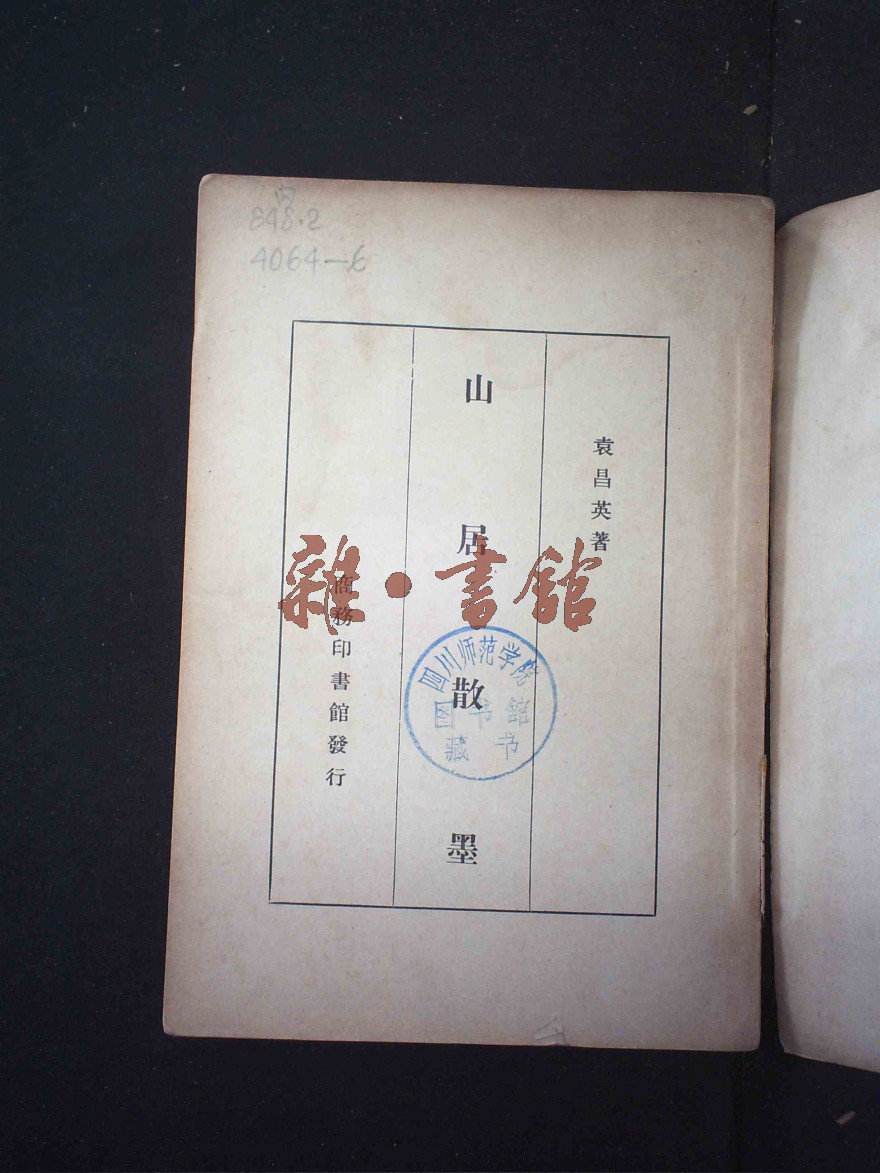 848.2
4064—6
袁昌英著
山居散墨
商務印書館發行
雜·書館
四川师范学院
图书馆
藏书